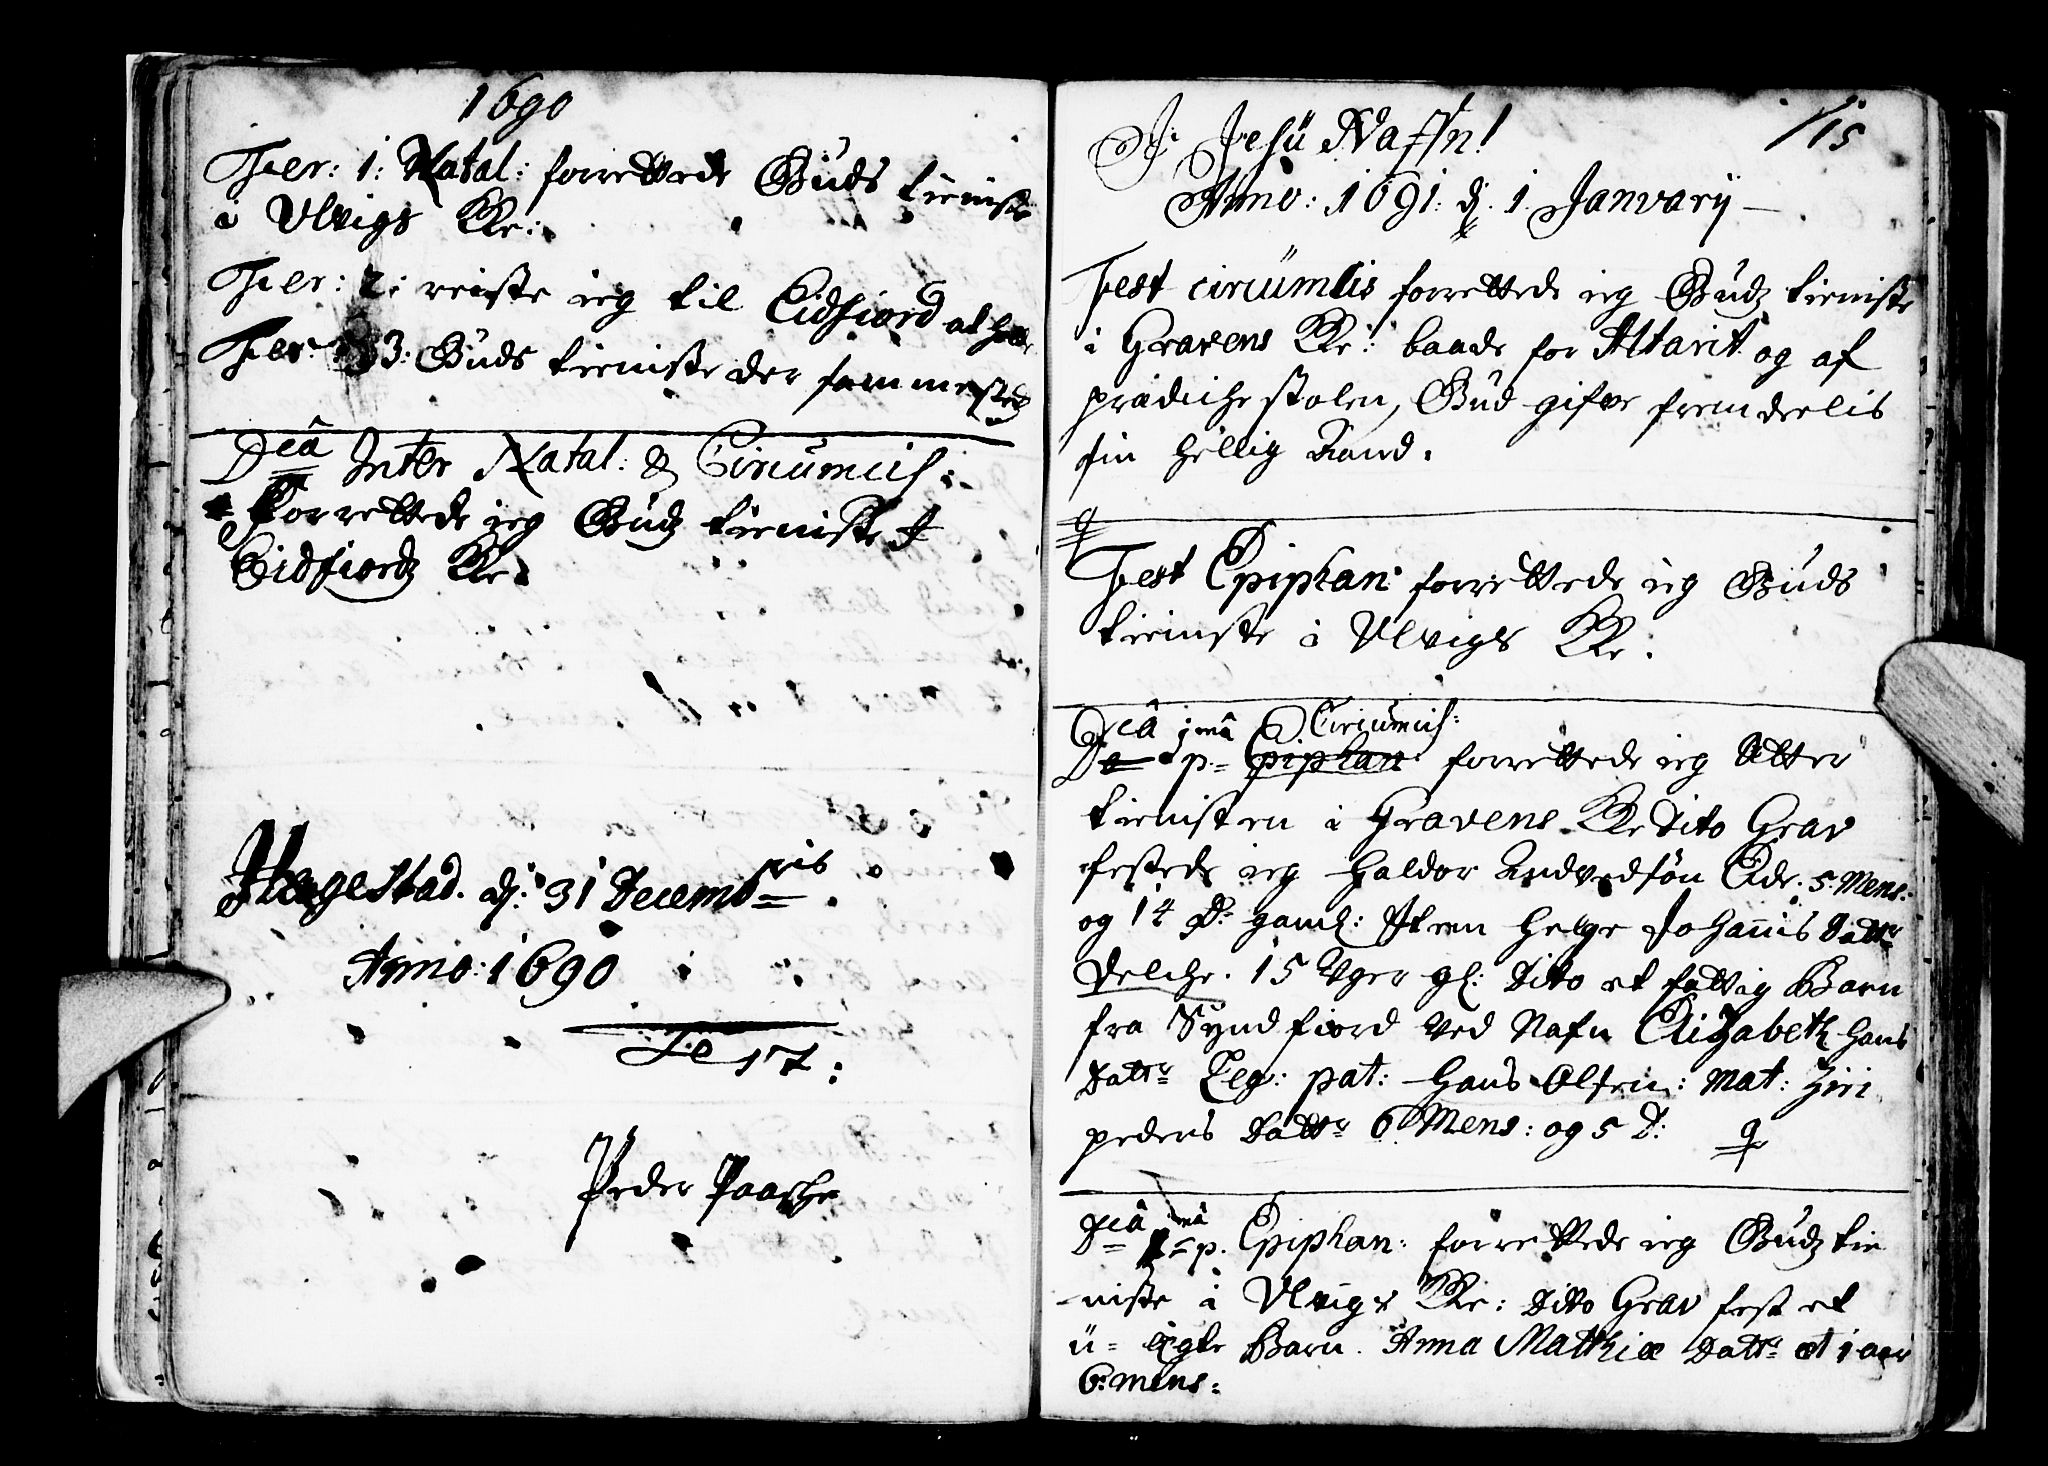 1690
Fer: 1: Natal: forrettede Guds tieniste
i Ulvigs Kr:
Fer: 2: reiste ieg til Eidfiord at holde
Fer: 3: Guds tieniste der sammesteds
Dcâ Inter Natal: & Circumcis:
Forrettede ieg Gudz tieniste I
Eidfiordz Kr:
Hagestad. dj: 31 Decembris
Anno: 1690
Test:
Peder Paasche
115
J: Jesu Naffn!
Anno: 1691: dj. 1. Janvarij
Fest circumcis forrettede ieg Gudz tieniste
i Gravens Kr: baade for Altarit og af
prædichestolen, Gud gifve fremdeelis
sin hellig Aand.
Fest Epiphan: forrettede ieg Guds
tieniste i Ulvigs Kr:
Dcâ 1mâ Circumcis:
De p. Epiphan forrettede ieg Atter
tienisten i Gravens Kr Dito Grav
festede ieg Haldor Andvedsøn Eide. 5. Mens:
og 14 D: gaml: Item Helge Johannis Dattr
Velche. 15 Uger gl: Dito et fattig Barn
fra Syndfiord ved Nafn Elizabeth Hans
Dattr Leg: pat: Hans Olsen: mat: Ziri
peders Dattr 6 Mens: og 5 D:
Dcâ 1mâ p. Epiphan: forrettede ieg Gudz tie
niste i Ulvigs Kr: Dito Grav fest et
u-ægte Barn. Anna Matthiæ Dattr et 1 aar
6: mens: